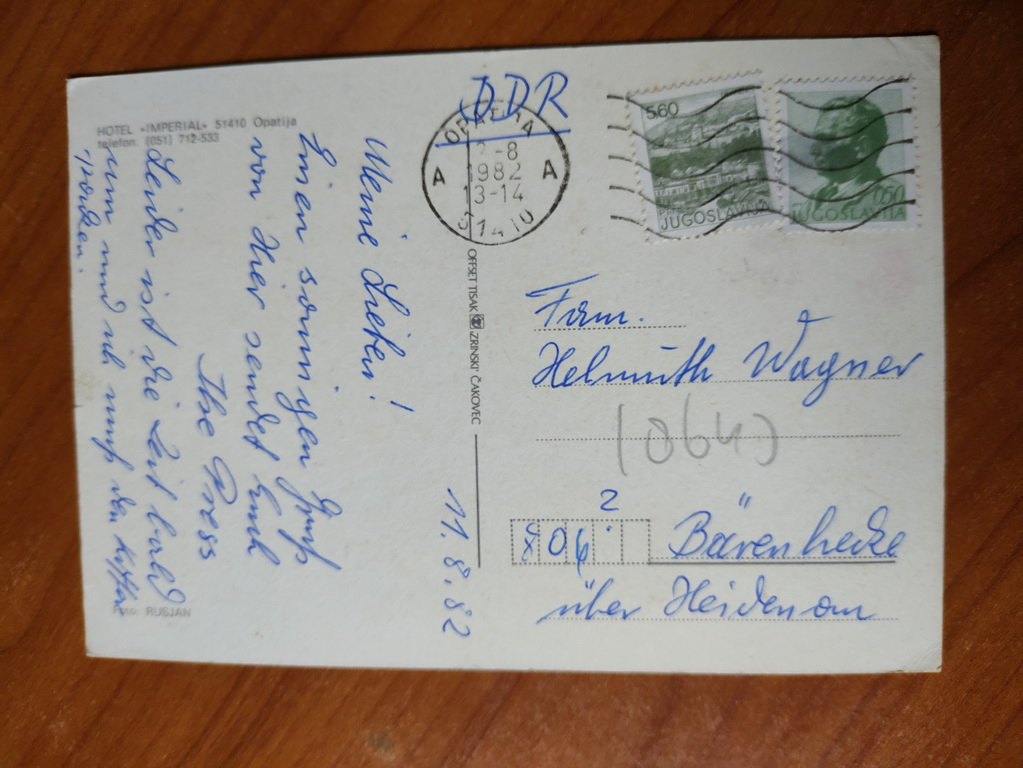 HOTEL «IMPERIAL» 51410 Opatija
telefon: (051) 712-533
11.8.82
Meine Lieben!
Einen sonnigen Gruß
von Hier sendet Euch
Ilse Press
Leider ist die Zeit bald
um und ich muß den Koffer
packen.
Foto: RUSJAN
OFFSET TISAK ZRINSKI ČAKOVEC
DDR
A
-8
1982
13-14
A
51410
5.60
JUGOSLAVIJA
0.50
JUGOSLAVIJA
Firm.
Helmuth Wagner
(064)
2
806
Bärenhecke
über Heidenau